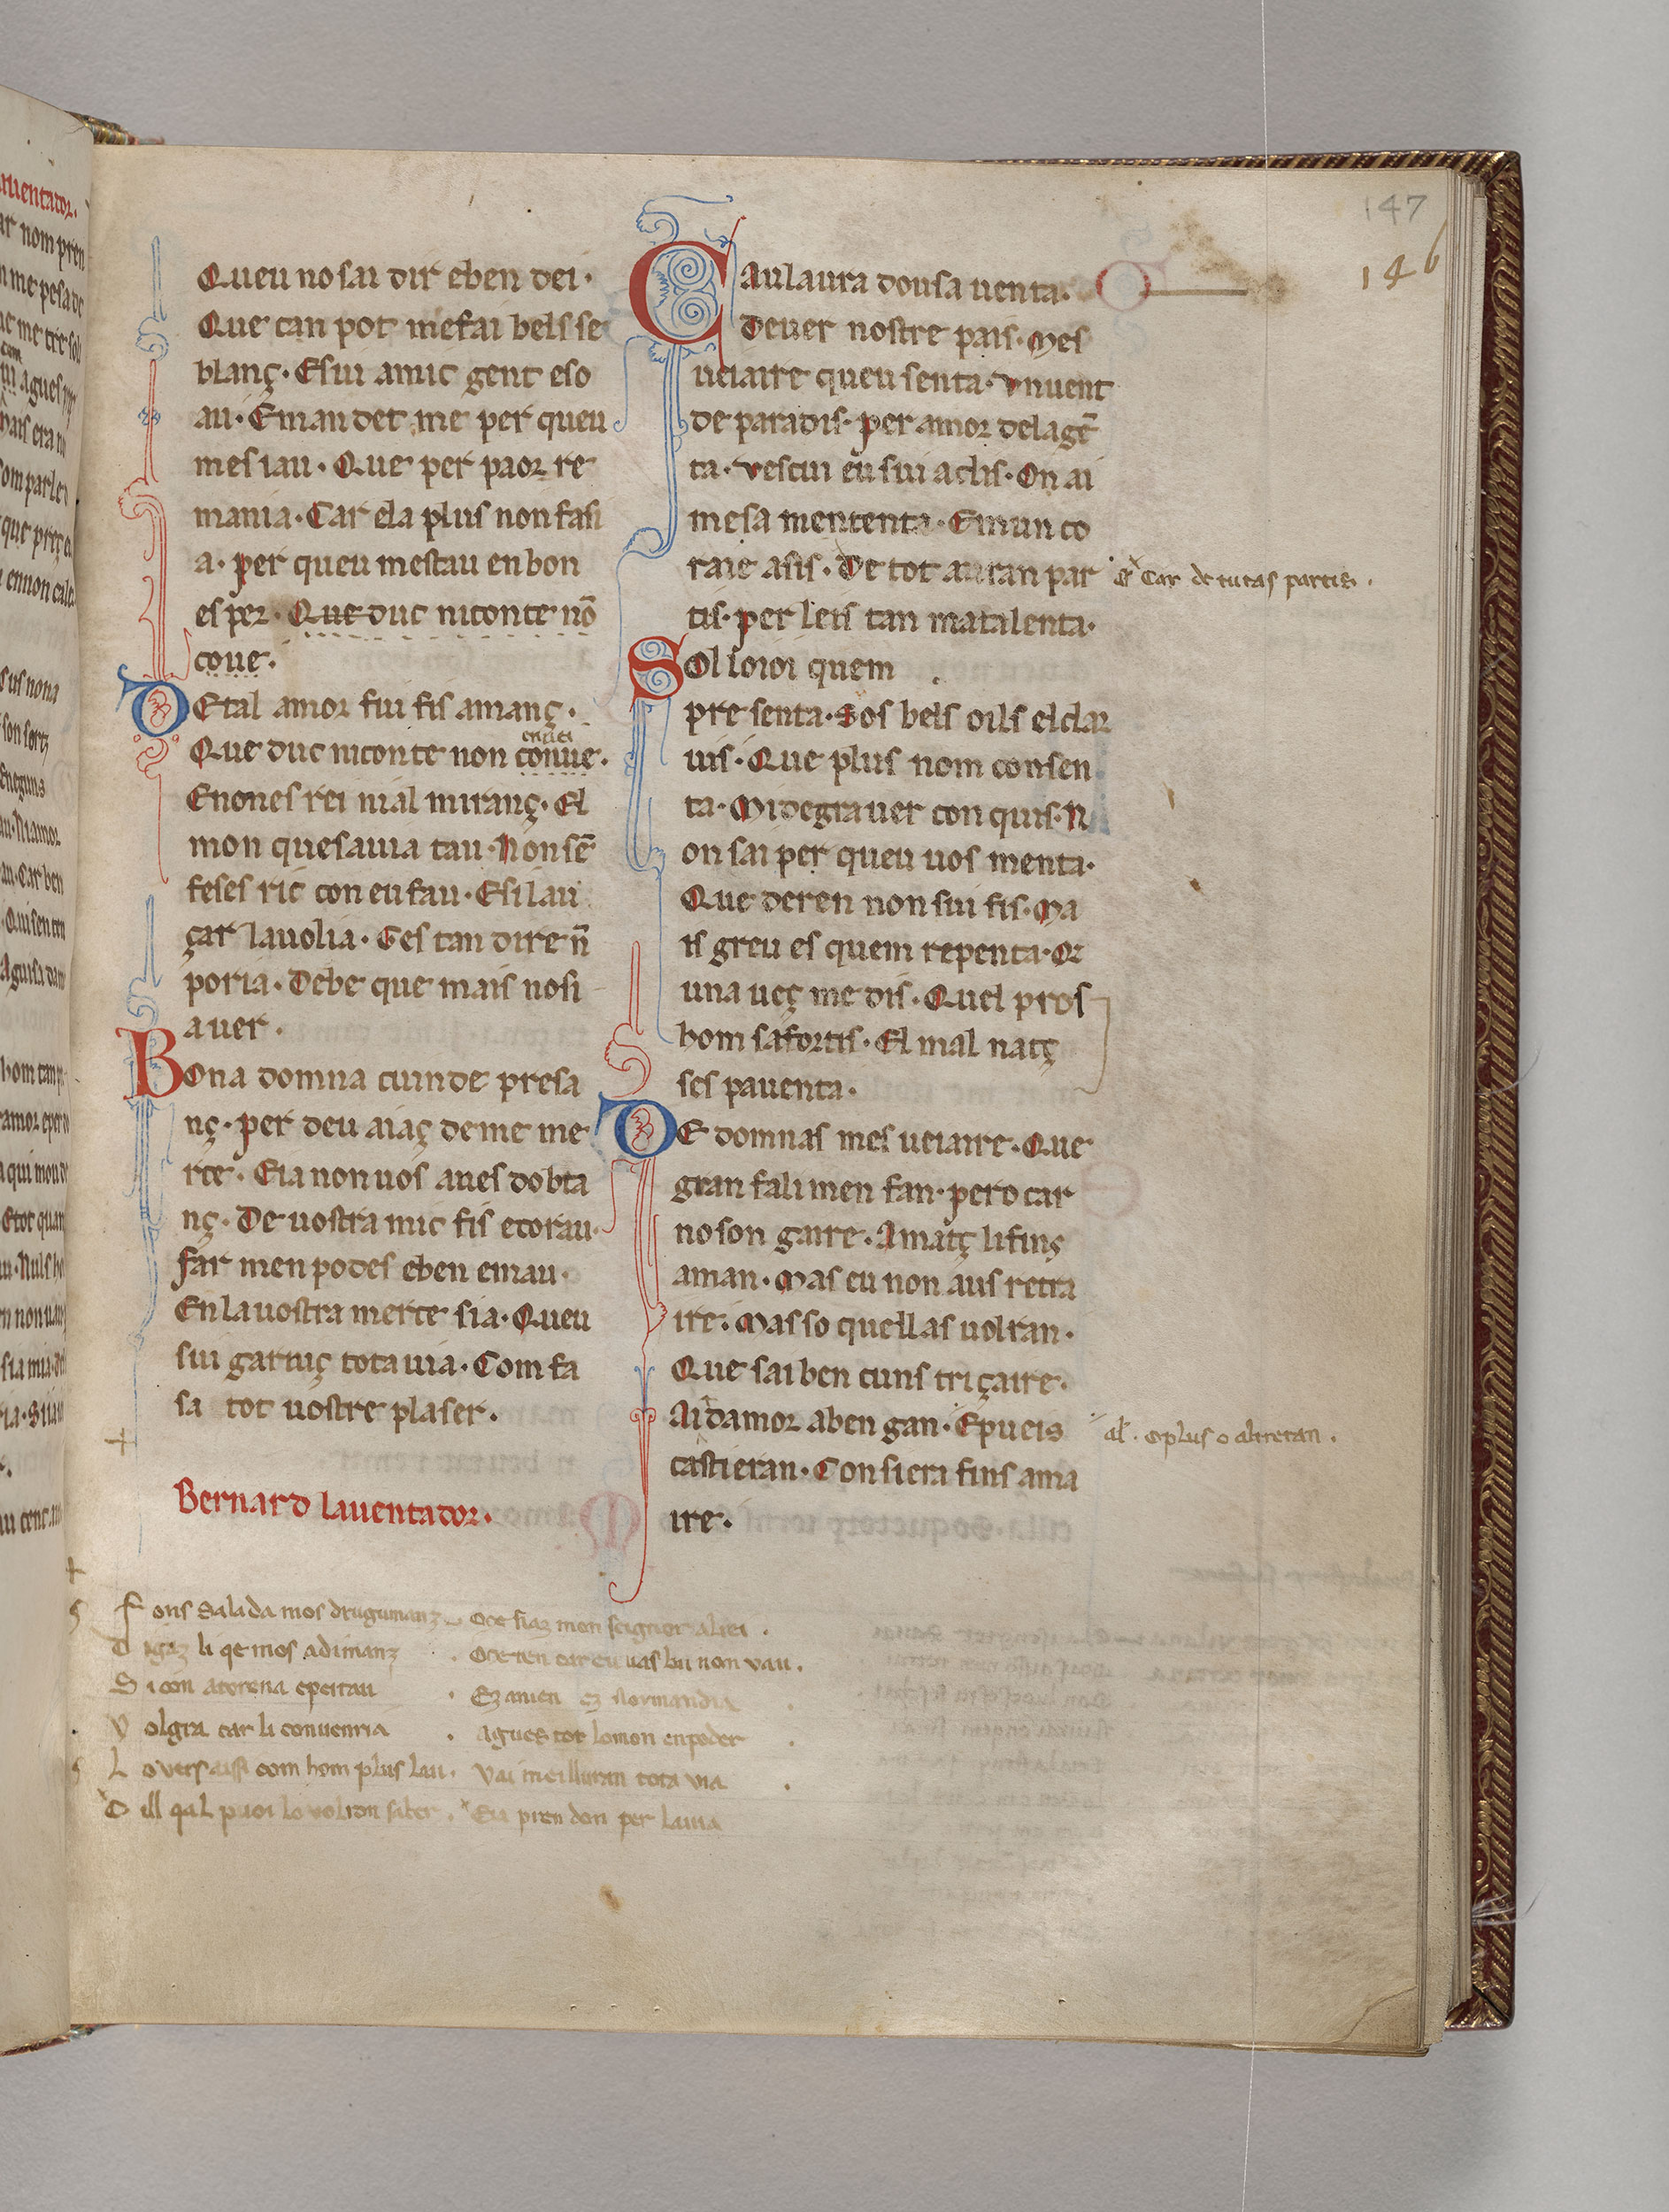 147
146
Queu no sai dir eben dei·
Que can pot me fai bels se
blanç· E sui amic gent e so
au· E man det me per queu
mes iau· Que per paor re
mania· Car ela plus non fasi
a· per queu mestau en bon
esper· Que duc ni conte nō
coue·
DEtal amor fui fis amanç·
enuei
Que duc ni conte non conue·
E nones rei nial miranç· El
mon quesauia tau· Non sē
feses ric con eu fau· E si lau
çar lauolia· Ges tan dire n̄
poria· Debe que mais nosi
auer·
BOna domna cuinde presa
nç· per deu aiaç de me me
rce· Eia non uos aues dobta
nç· De uostra mic fis e corau·
far men podes eben emau·
En la uostra merce sia· Queu
sui garniç tota uia· Com fa
sa tot uostre plaser·
Bernard lauentador·
CAulaura dousa uenta·
Deuer nostre pais· Mes
ueiaire queu senta· Vnuent
de paradis· per amor delagē
ta· Vescui eu sui aclis· On ai
mesa mententa· Emun co
raie asis· De tot auran par
Car de tutas partis·
tis· per leis tan matalenta·
SOl loioi quem
presenta· Sos bels oils el clar
uis· Que plus nom consen
ta· Mi degra uer conquis· N
on sai per queu uos menta·
Que deren non sui fis· Ma
is greu es quem repenta· Or
una ueç me dis· Quel pros
hom safortis· El mal natç
ses pauenta·
DE domnas mes ueiaire· Que
gran falimen fan· pero car
no son gaire· Amatç li fins
aman· Mas eu non aus retra
ire· Mas so quellas uolran·
Que sai ben cuns triçaire·
Aidamor aben gan· E pueis
al· o plus o altretan·
castieran· Con siera fins ama
ire·
Fons Salada mos drugumanz· Oce siaz mon seignor al rei·
Digaz li qe mos adimanz· Oce ten car eu uas lui nom vau·
Si con a torena e peitau· Ez anieu ez Normandia·
Volgra car li conuenria· Agues tot lo mon en poder·
Lo vers aisi com hom plus lau· Vai meilluran tota via·